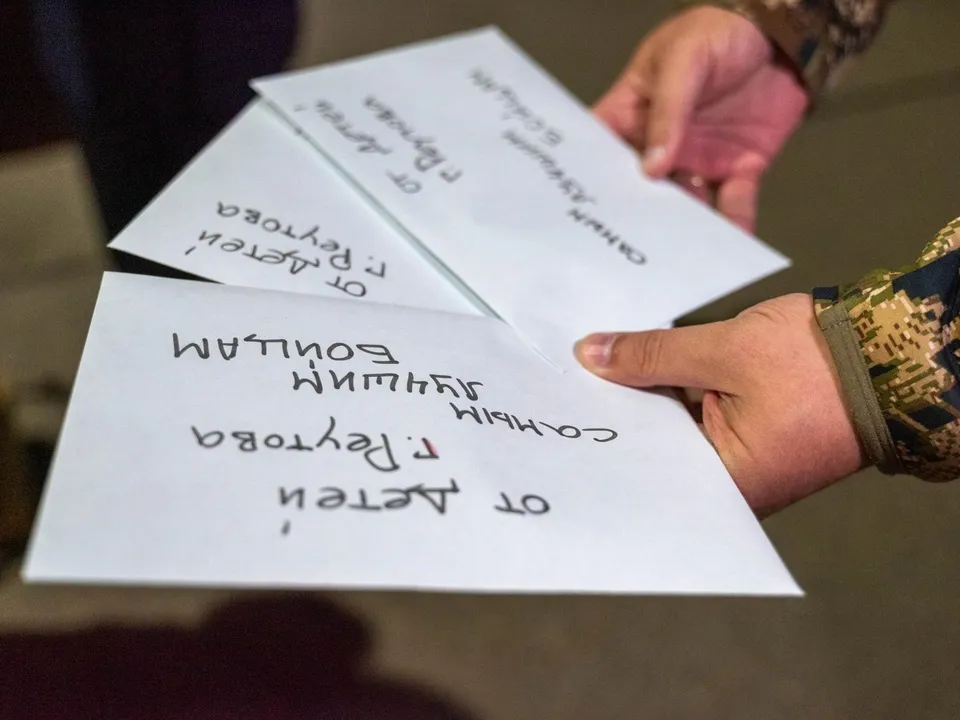 от детей
г. Реутова
самым
лучшим
бойцам
от детей
г. Реутова
от детей
г. Реутова
самым
лучшим
бойцам